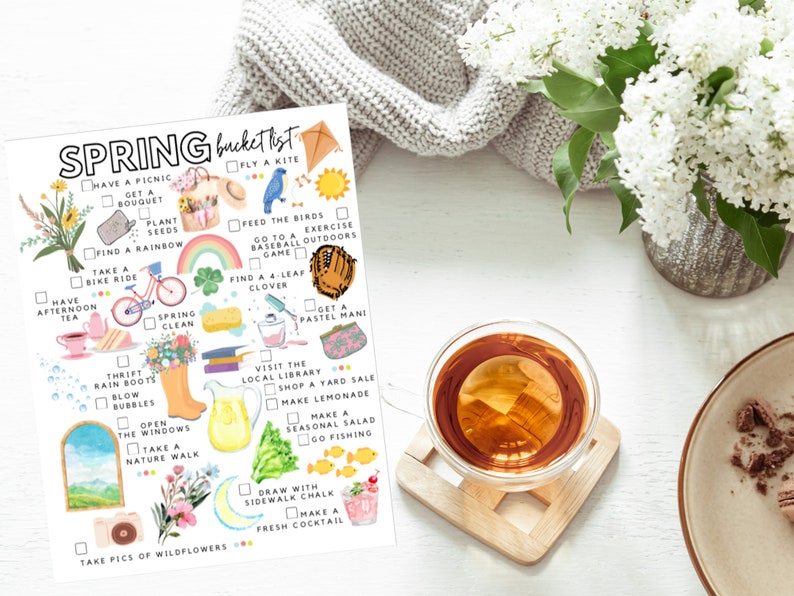 SPRING bucket list
HAVE A PICNIC
FLY A KITE
GET A
BOUQUET
PLANT
SEEDS
FEED THE BIRDS
EXERCISE
OUTDOORS
FIND A RAINBOW
GO TO A
BASEBALL
GAME
TAKE A
BIKE RIDE
FIND A 4-LEAF
CLOVER
HAVE
AFTERNOON
TEA
SPRING
CLEAN
GET A
PASTEL MANI
THRIFT
RAIN BOOTS
VISIT THE
LOCAL LIBRARY
SHOP A YARD SALE
BLOW
BUBBLES
MAKE LEMONADE
OPEN
THE WINDOWS
MAKE A
SEASONAL SALAD
TAKE A
NATURE WALK
GO FISHING
DRAW WITH
SIDEWALK CHALK
MAKE A
FRESH COCKTAIL
TAKE PICS OF WILDFLOWERS